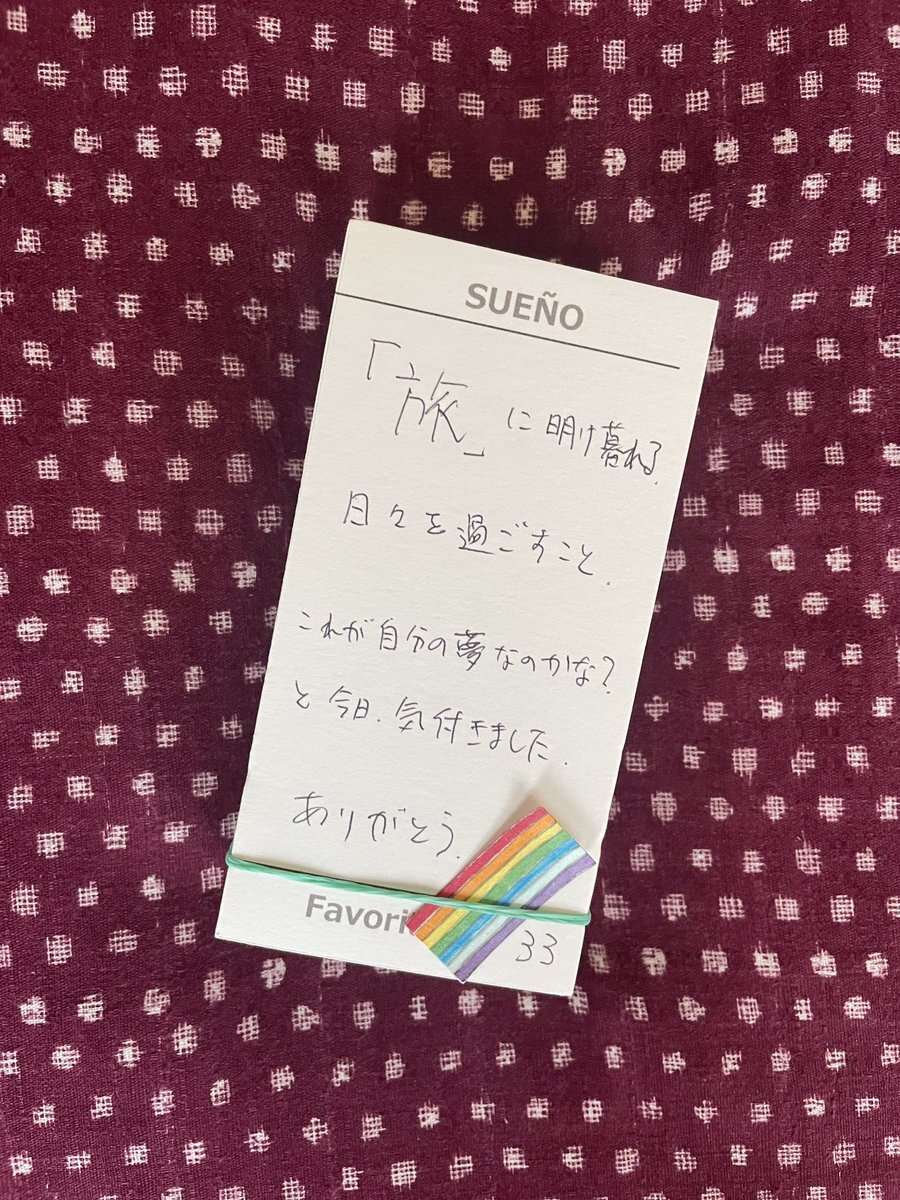 SUEÑO
「旅」に明け暮れる.
日々を過ごすこと.
これが自分の夢なのかな?
と今日.気付きました.
ありがとう.
Favori
33